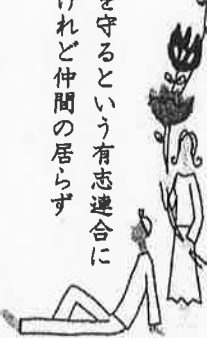 を守るという有志連合に
けれど仲間の居らず